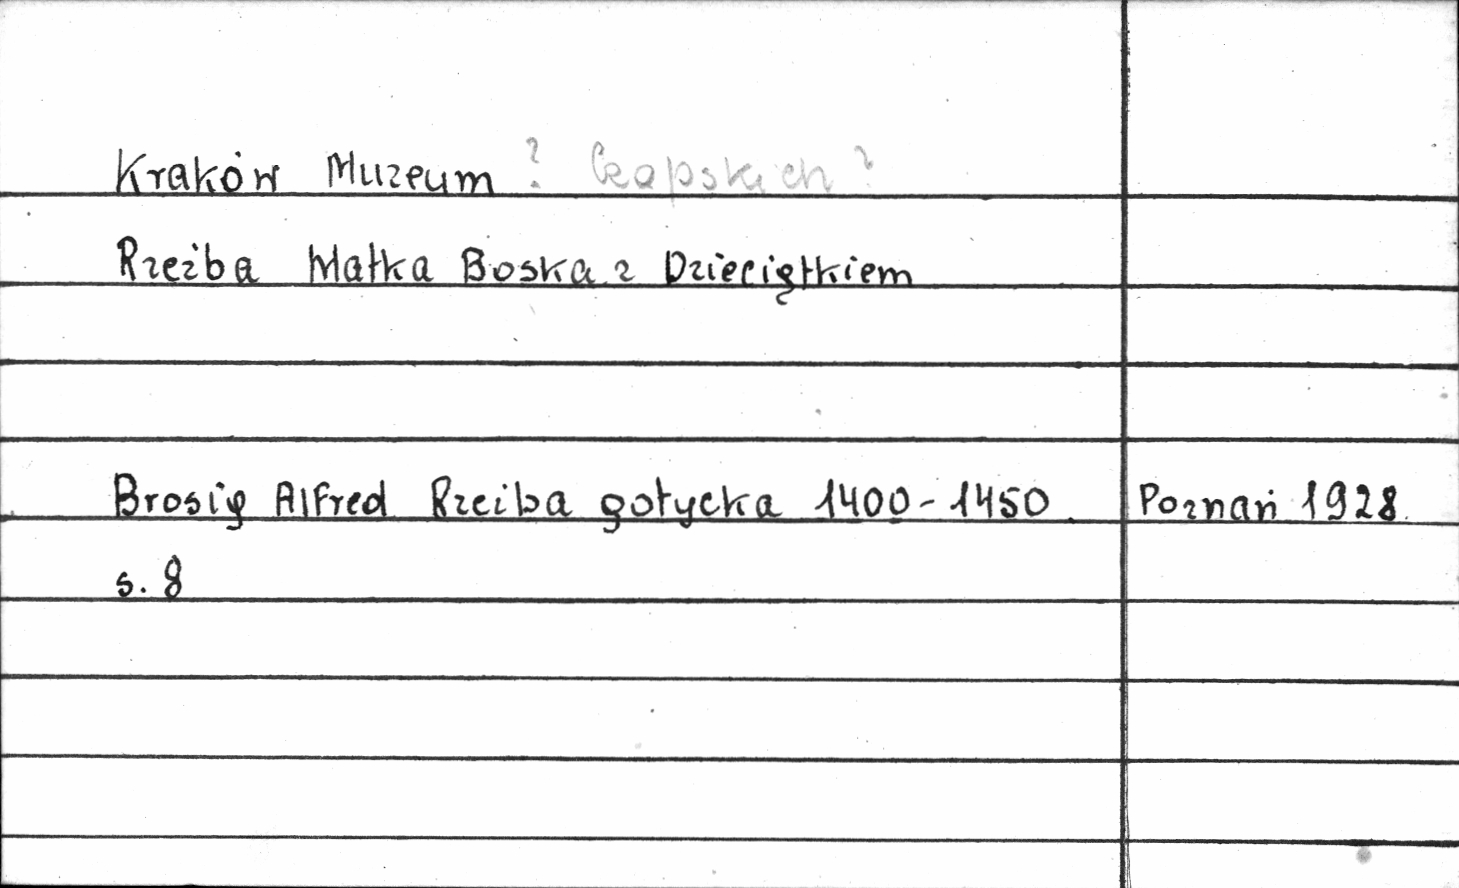 Kraków Muzeum ? Czapskich ?
Rzeźba Matka Boska z Dzieciątkiem
Brosig Alfred Rzeźba gotycka 1400-1450 Poznań 1928.
s. 8